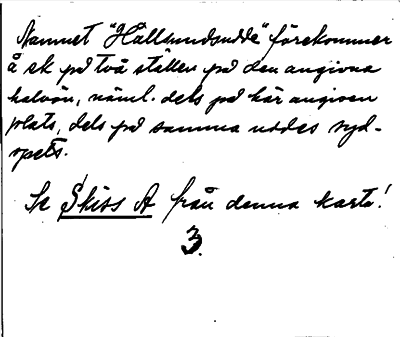 Namnet "Hällsundsudde" förekommer
å sk på två ställen på den angivna
halvön, näml. dels på här angiven
plats, dels på samma uddes syd-
spets.
Se Skiss A från denna karta!
3.